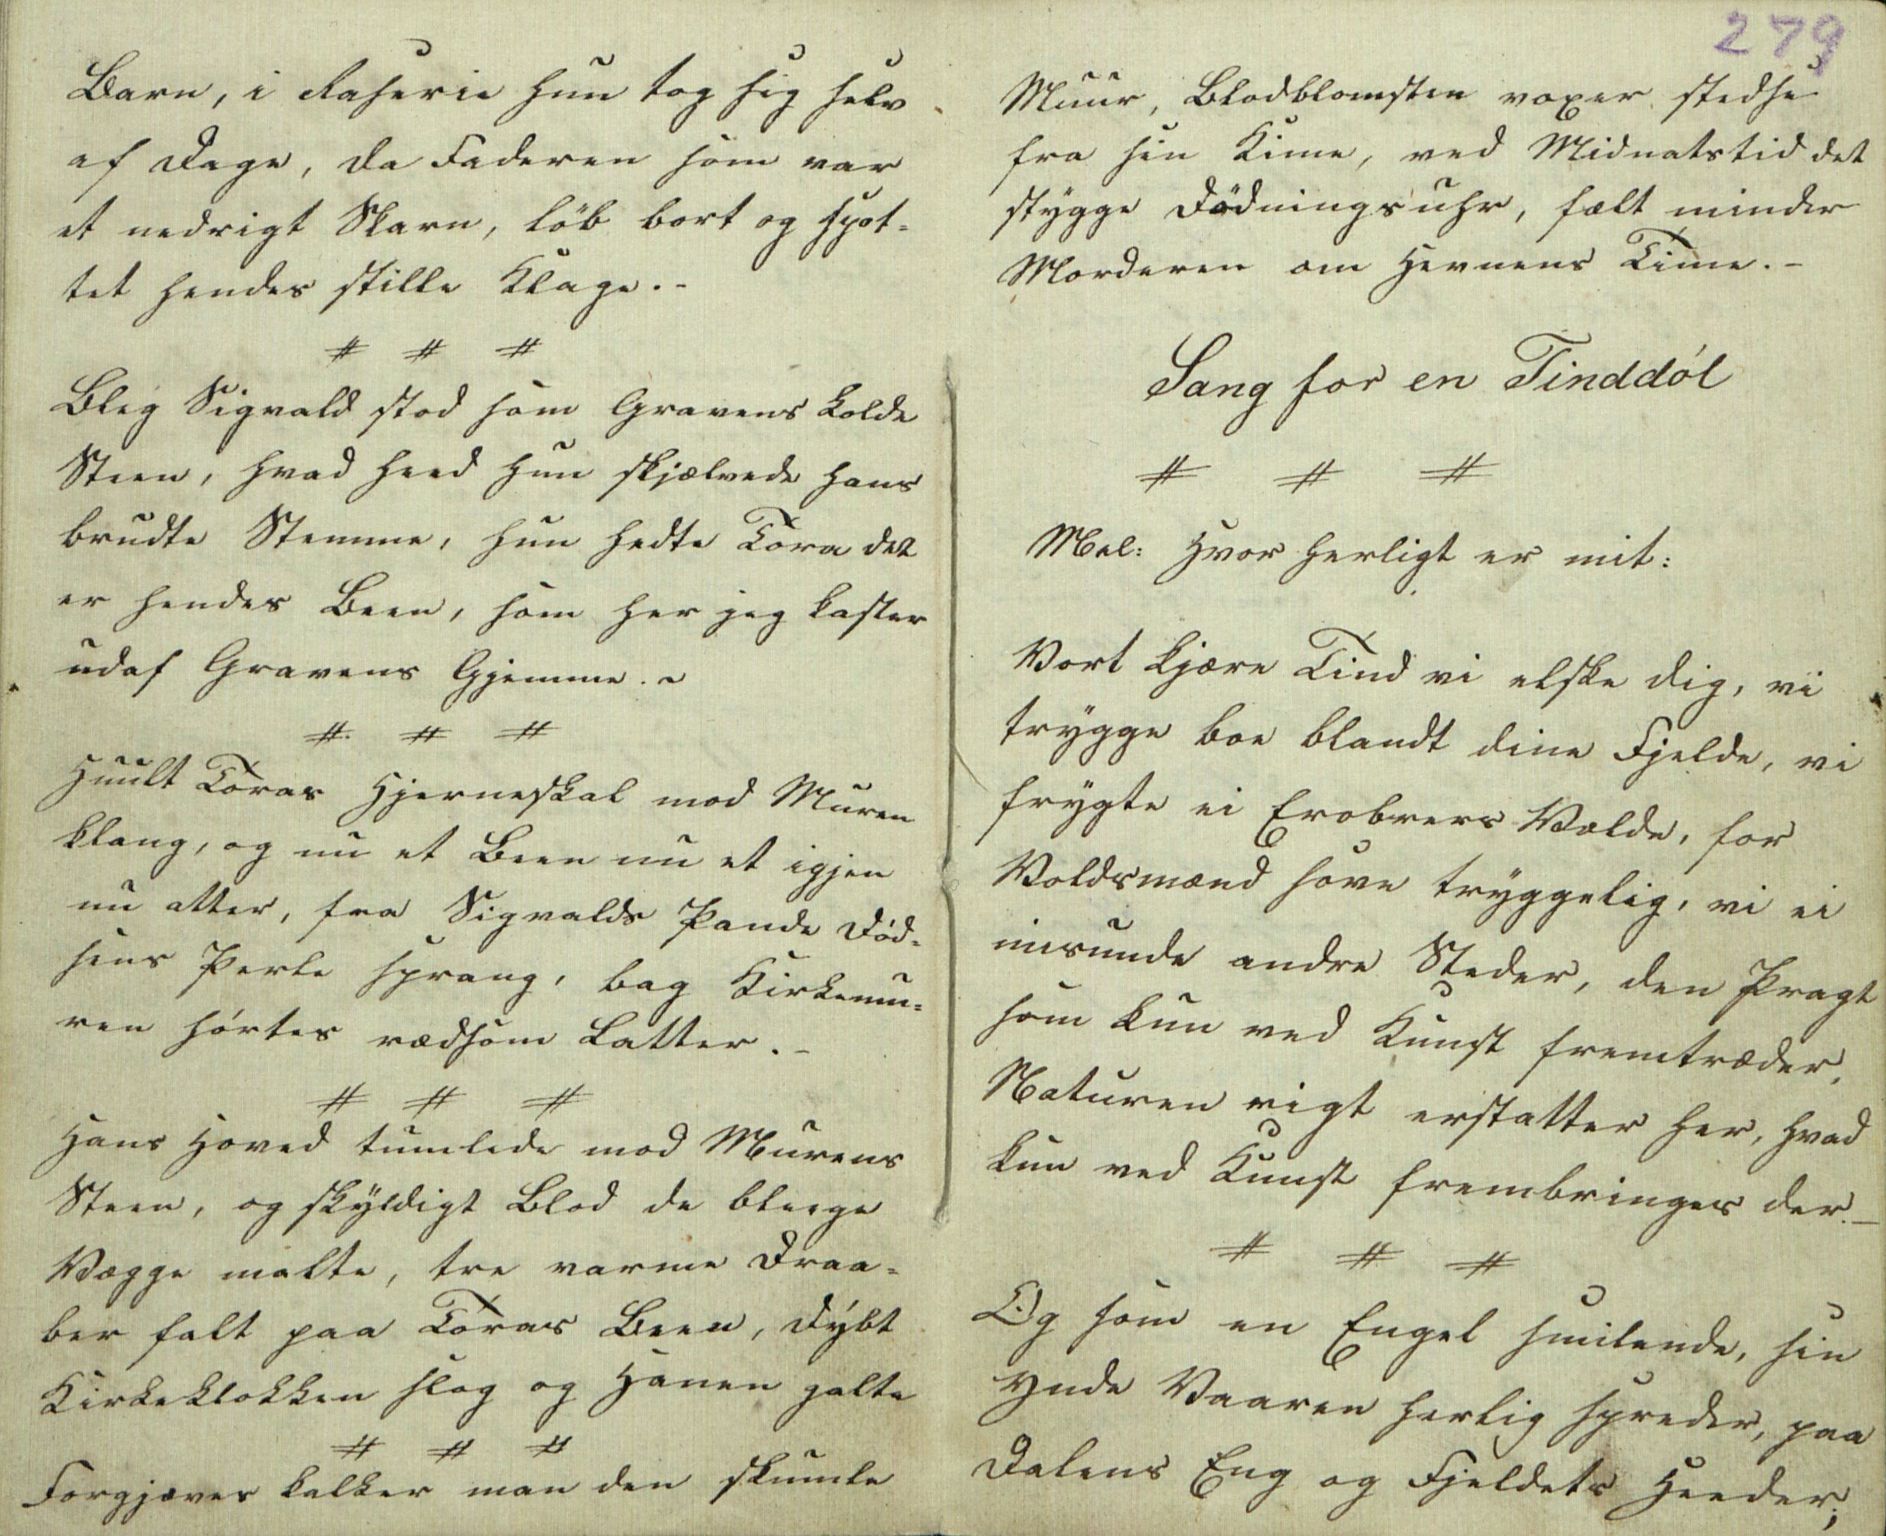 Barn, i Raserie hun tog sig selv
af Dage, da Faderen som var
et nedrigt Skarn, løb bort og spot-
tet hendes stille Klage.-
# # #
Bleg Sigvald stod som Gravens kolde
Steen, hvad heed hun skjælvede hans
brudte Stemme, hun hedte Tora det
er hendes Been, som her jeg kaster
udaf Gravens Gjemme.-
# # #
Huult Toras Hjerneskal mod Muren
klang, og nu et Been nu et igjen
nu atter, fra Sigvalds Pande Død-
sens Perle sprang, bag Kirkemu-
ren hørtes rædsom Latter.-
# # #
Hans Hoved tumlede mod Murens
Steen, og skyldigt Blod de blege
Vægge malte, tre varme Draa-
ber falt paa Toras Been, dybt
Kirkeklokken slog og Hanen galte
# # #
Forgjæves kalker man den skumle
279
Muur, Blodblomsten voxer stedse
fra sin Kime, ved Midnatstid det
stygge Dödningsuhr, fælt minder
Morderen om Hevnens Time.-
Sang for en Tinddøl
# # #
Mel: Hvor herligt er mit:
Vort kjære Tind vi elske dig, vi
trygge boe blandt dine Fjelde, vi
frygte ei Erobrers Vælde, for
Voldsmænd sove tryggelig, vi ei
misunde andre Steder, den Pragt
som kun ved Kunst fremtræder,
Naturen rigt erstatter her, hvad
kun ved Kunst frembringes der.-
# # #
Og som en Engel smilende, sin
Ynde Vaaren herlig spreder, paa
Dalens Eng og Fjeldets Heeder;